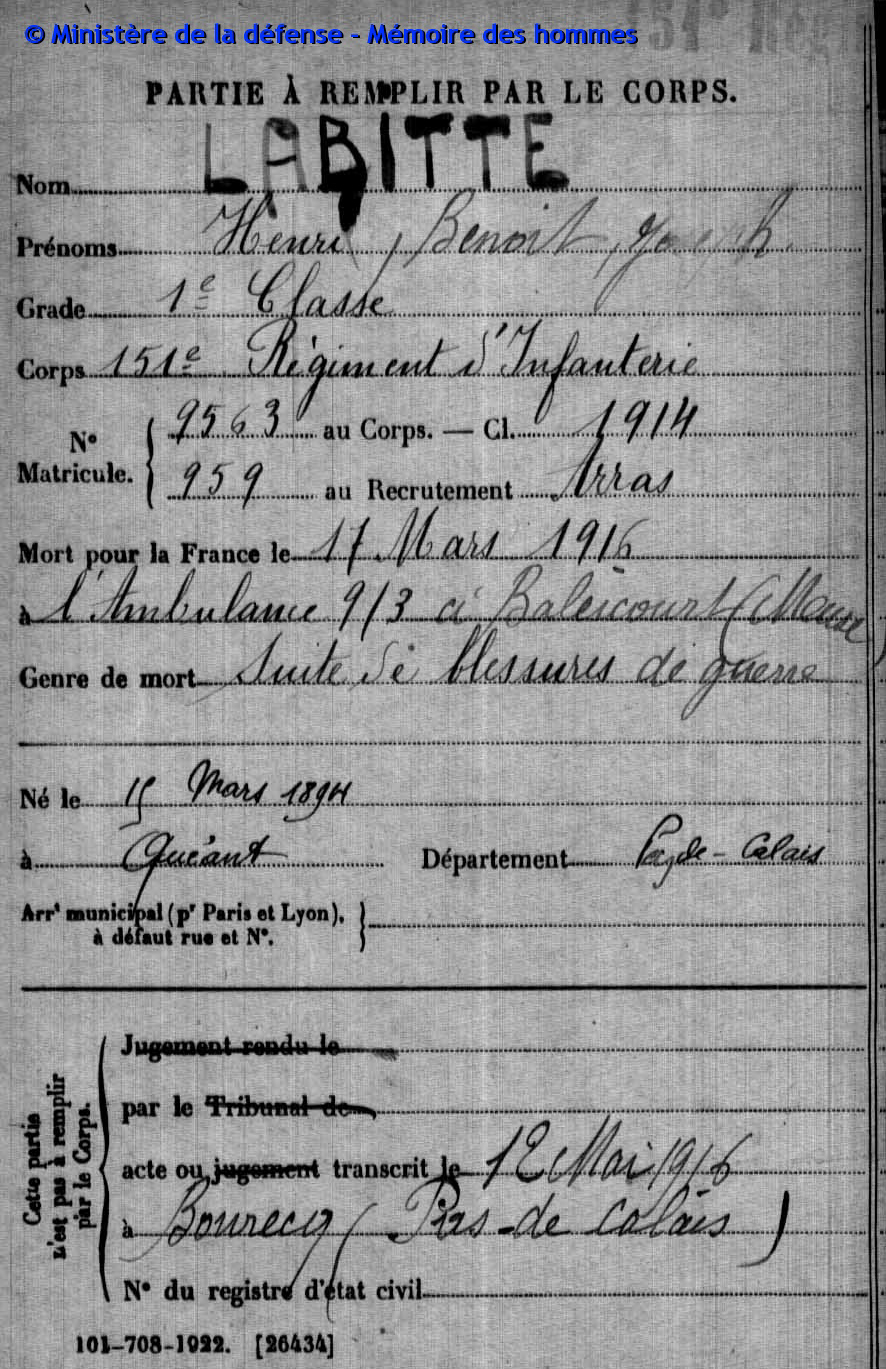 © Ministère de la défense - Mémoire des hommes
151e Rég
PARTIE À REMPLIR PAR LE CORPS.
Nom LABITTE
Prénoms Henri, Benoit, Joseph
Grade 1e Classe
Corps 151e Régiment d'Infanterie
No Matricule. { 9563 au Corps. — Cl. 1914
959 au Recrutement Arras
Mort pour la France le 17 Mars 1916
à l'Ambulance 9/3 à Baleicourt (Meuse)
Genre de mort Suite de blessures de guerre
Né le 15 Mars 1894
à Quéant Département Pas-de-Calais
Arrt municipal (pr Paris et Lyon), }
à défaut rue et No.
Cette partie n'est pas à remplir par le Corps.
Jugement rendu le
par le Tribunal de
acte ou jugement transcrit le 12 Mai 1916
à Bourecq (Pas-de Calais)
No du registre d'état civil
101-708-1922. [26434]